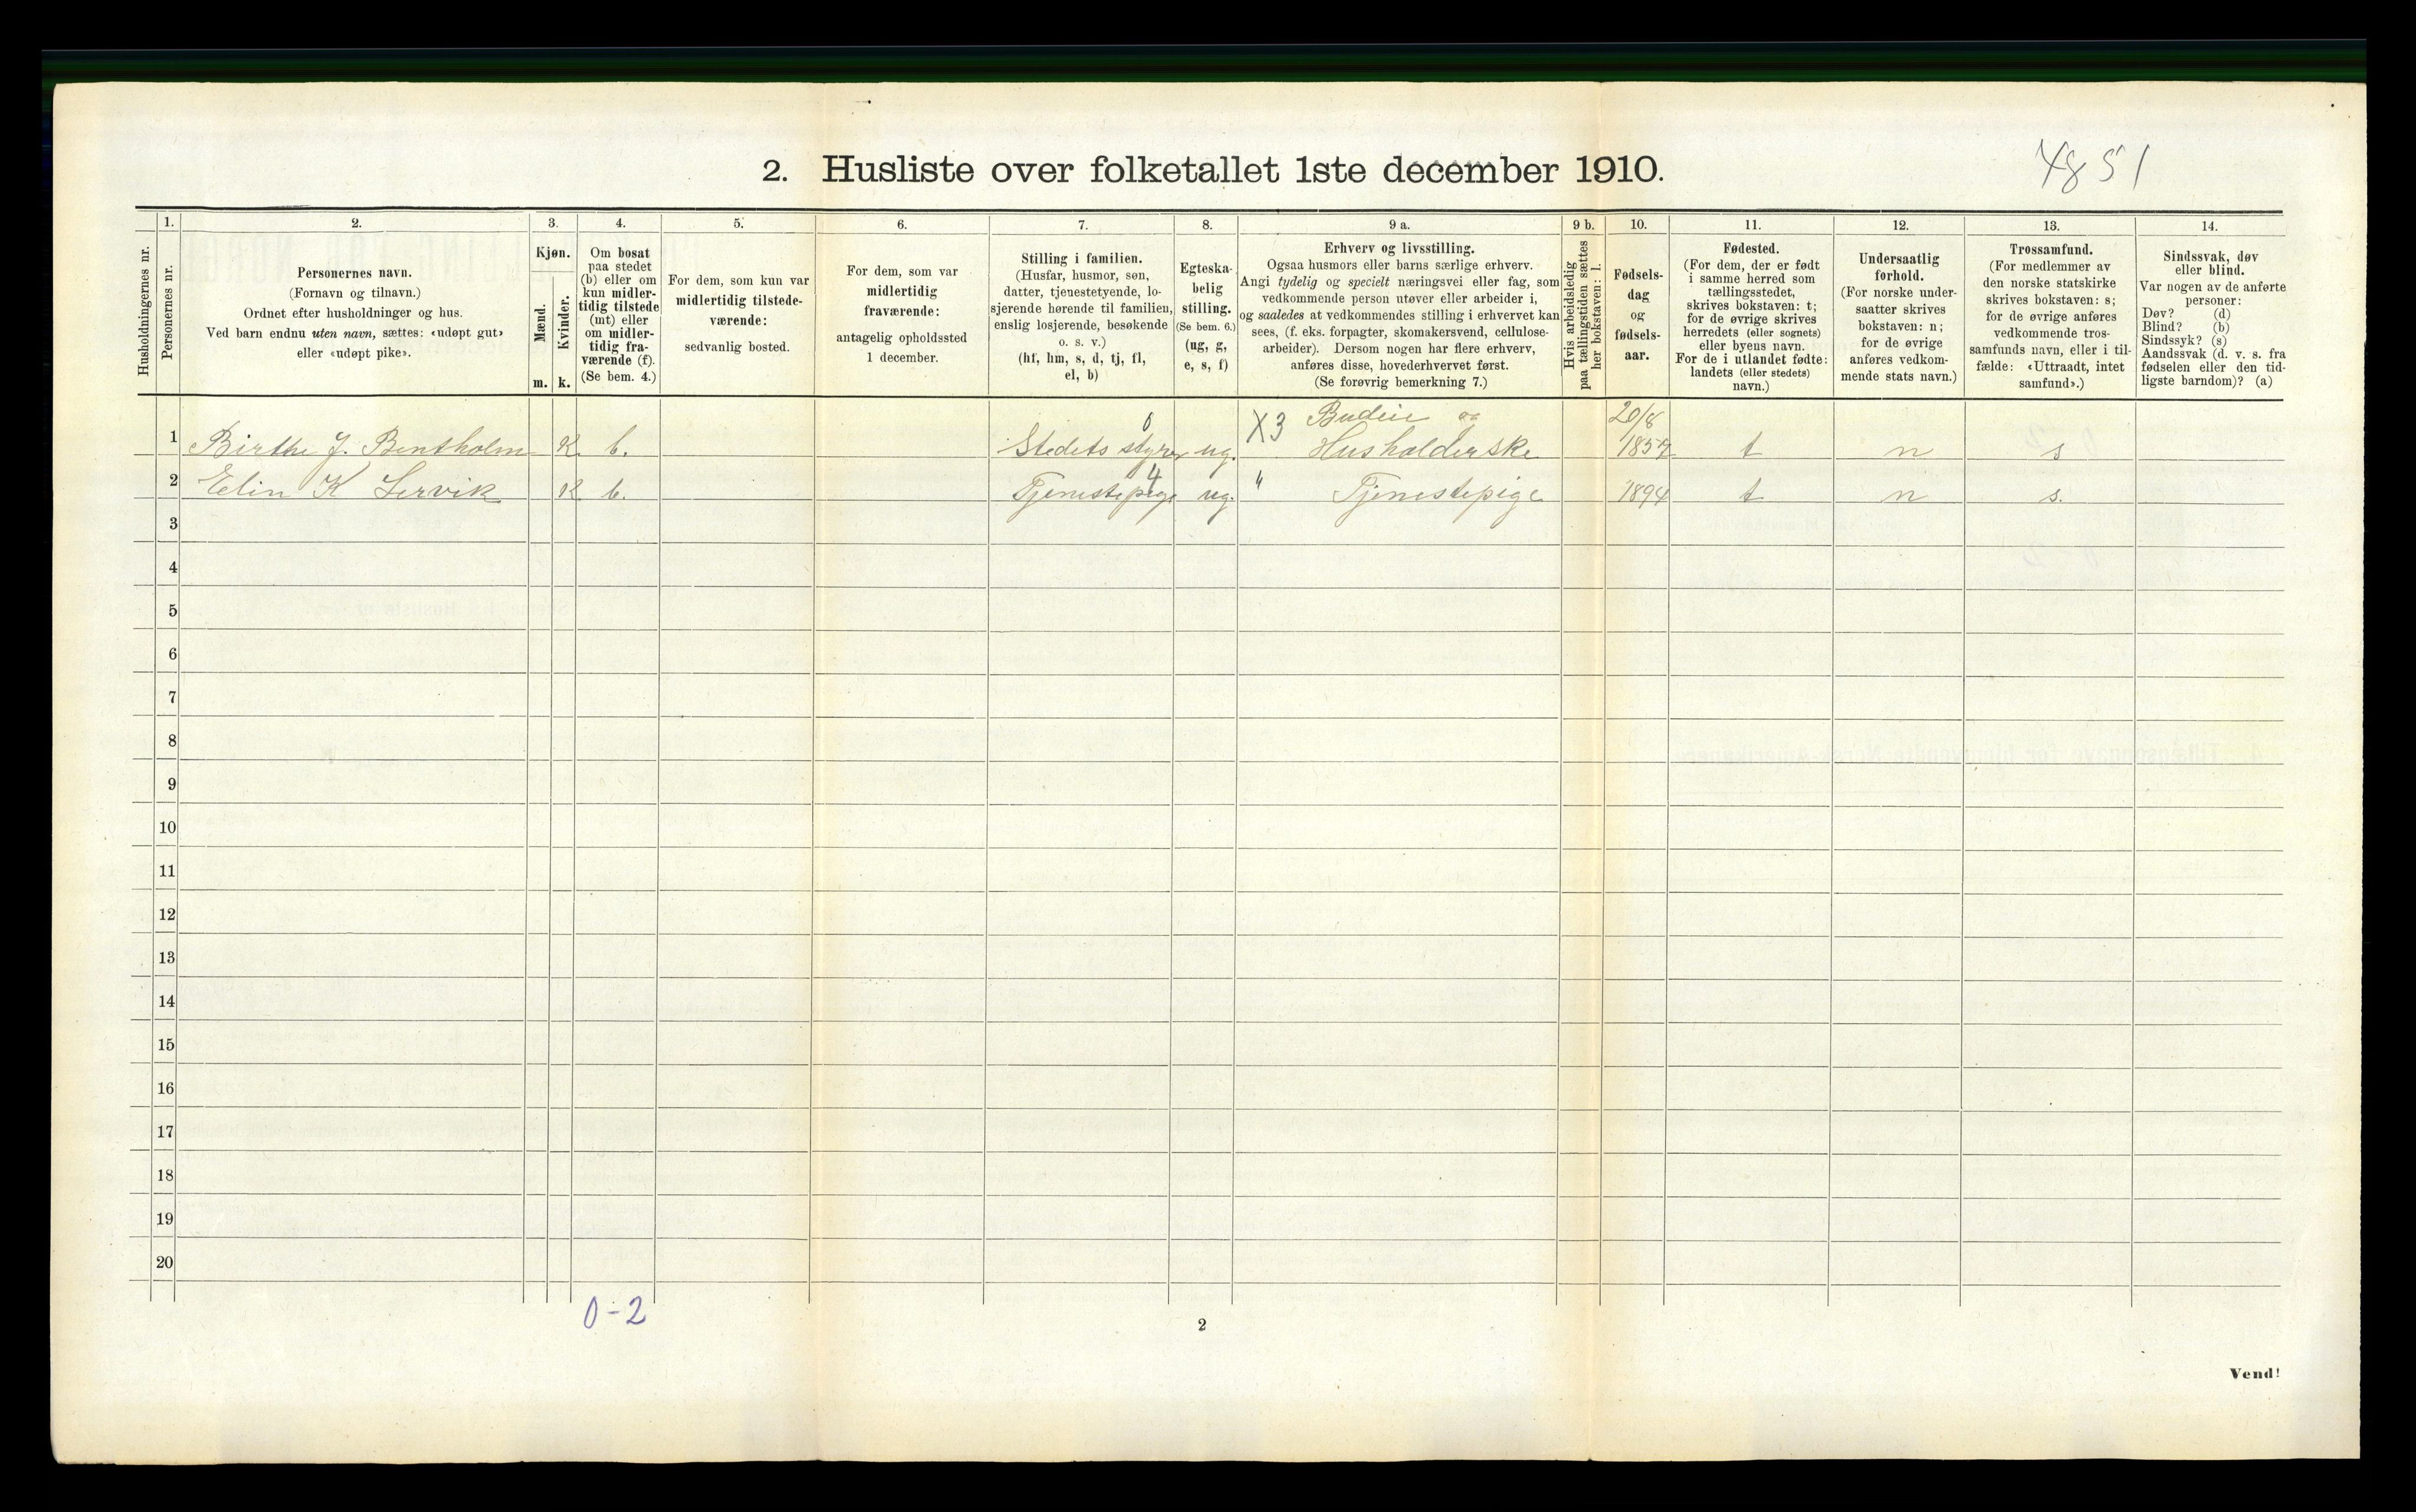 2. Husliste over folketallet 1ste december 1910.
4851
Husholdningernes nr.
1.
Personernes nr.
2.
Personernes navn.
(Fornavn og tilnavn.)
Ordnet efter husholdninger og hus.
Ved barn endnu uten navn, sættes: «udøpt gut»
eller «udøpt pike».
3.
Kjøn.
Mænd.
Kvinder.
m. k.
4.
Om bosat
paa stedet
(b) eller om
kun midler-
tidig tilstede
(mt) eller
om midler-
tidig fra-
værende (f).
(Se bem. 4.)
5.
For dem, som kun var
midlertidig tilstede-
værende:
sedvanlig bosted.
6.
For dem, som var
midlertidig
fraværende:
antagelig opholdssted
1 december.
7.
Stilling i familien.
(Husfar, husmor, søn,
datter, tjenestetyende, lo-
sjerende hørende til familien,
enslig losjerende, besøkende
o. s. v.)
(hf, hm, s, d, tj, fl,
el, b)
8.
Egteska-
belig
stilling.
(Se bem. 6.)
(ug, g,
e, s, f)
9 a.
Erhverv og livsstilling.
Ogsaa husmors eller barns særlige erhverv.
Angi tydelig og specielt næringsvei eller fag, som
vedkommende person utøver eller arbeider i,
og saaledes at vedkommendes stilling i erhvervet kan
sees, (f. eks. forpagter, skomakersvend, cellulose-
arbeider). Dersom nogen har flere erhverv,
anføres disse, hovederhvervet først.
(Se forøvrig bemerkning 7.)
9 b.
Hvis arbeidsledig
paa tællingstiden sættes
her bokstaven: l.
10.
Fødsels-
dag
og
fødsels-
aar.
11.
Fødested.
(For dem, der er født
i samme herred som
tællingsstedet,
skrives bokstaven: t;
for de øvrige skrives
herredets (eller sognets)
eller byens navn.
For de i utlandet fødte:
landets (eller stedets)
navn.)
12.
Undersaatlig
forhold.
(For norske under-
saatter skrives
bokstaven: n;
for de øvrige
anføres vedkom-
mende stats navn.)
13.
Trossamfund.
(For medlemmer av
den norske statskirke
skrives bokstaven: s;
for de øvrige anføres
vedkommende tros-
samfunds navn, eller i til-
fælde: «Uttraadt, intet
samfund».)
14.
Sindssvak, døv
eller blind.
Var nogen av de anførte
personer:
Døv? (d)
Blind? (b)
Sindssyk? (s)
Aandssvak (d. v. s. fra
fødselen eller den tid-
ligste barndom)? (a)
0 X3 Budeie og 20/8
1 Birthe J. Bentholm K. b. Stedets styrer ug. Husholderske 1857 t n s
4
2 Elin K Servik K b. Tjenestepige ug. " Tjenestepige 1894 t n s.
3
4
5
6
7
8
9
10
11
12
13
14
15
16
17
18
19
20
0-2
2
Vend!